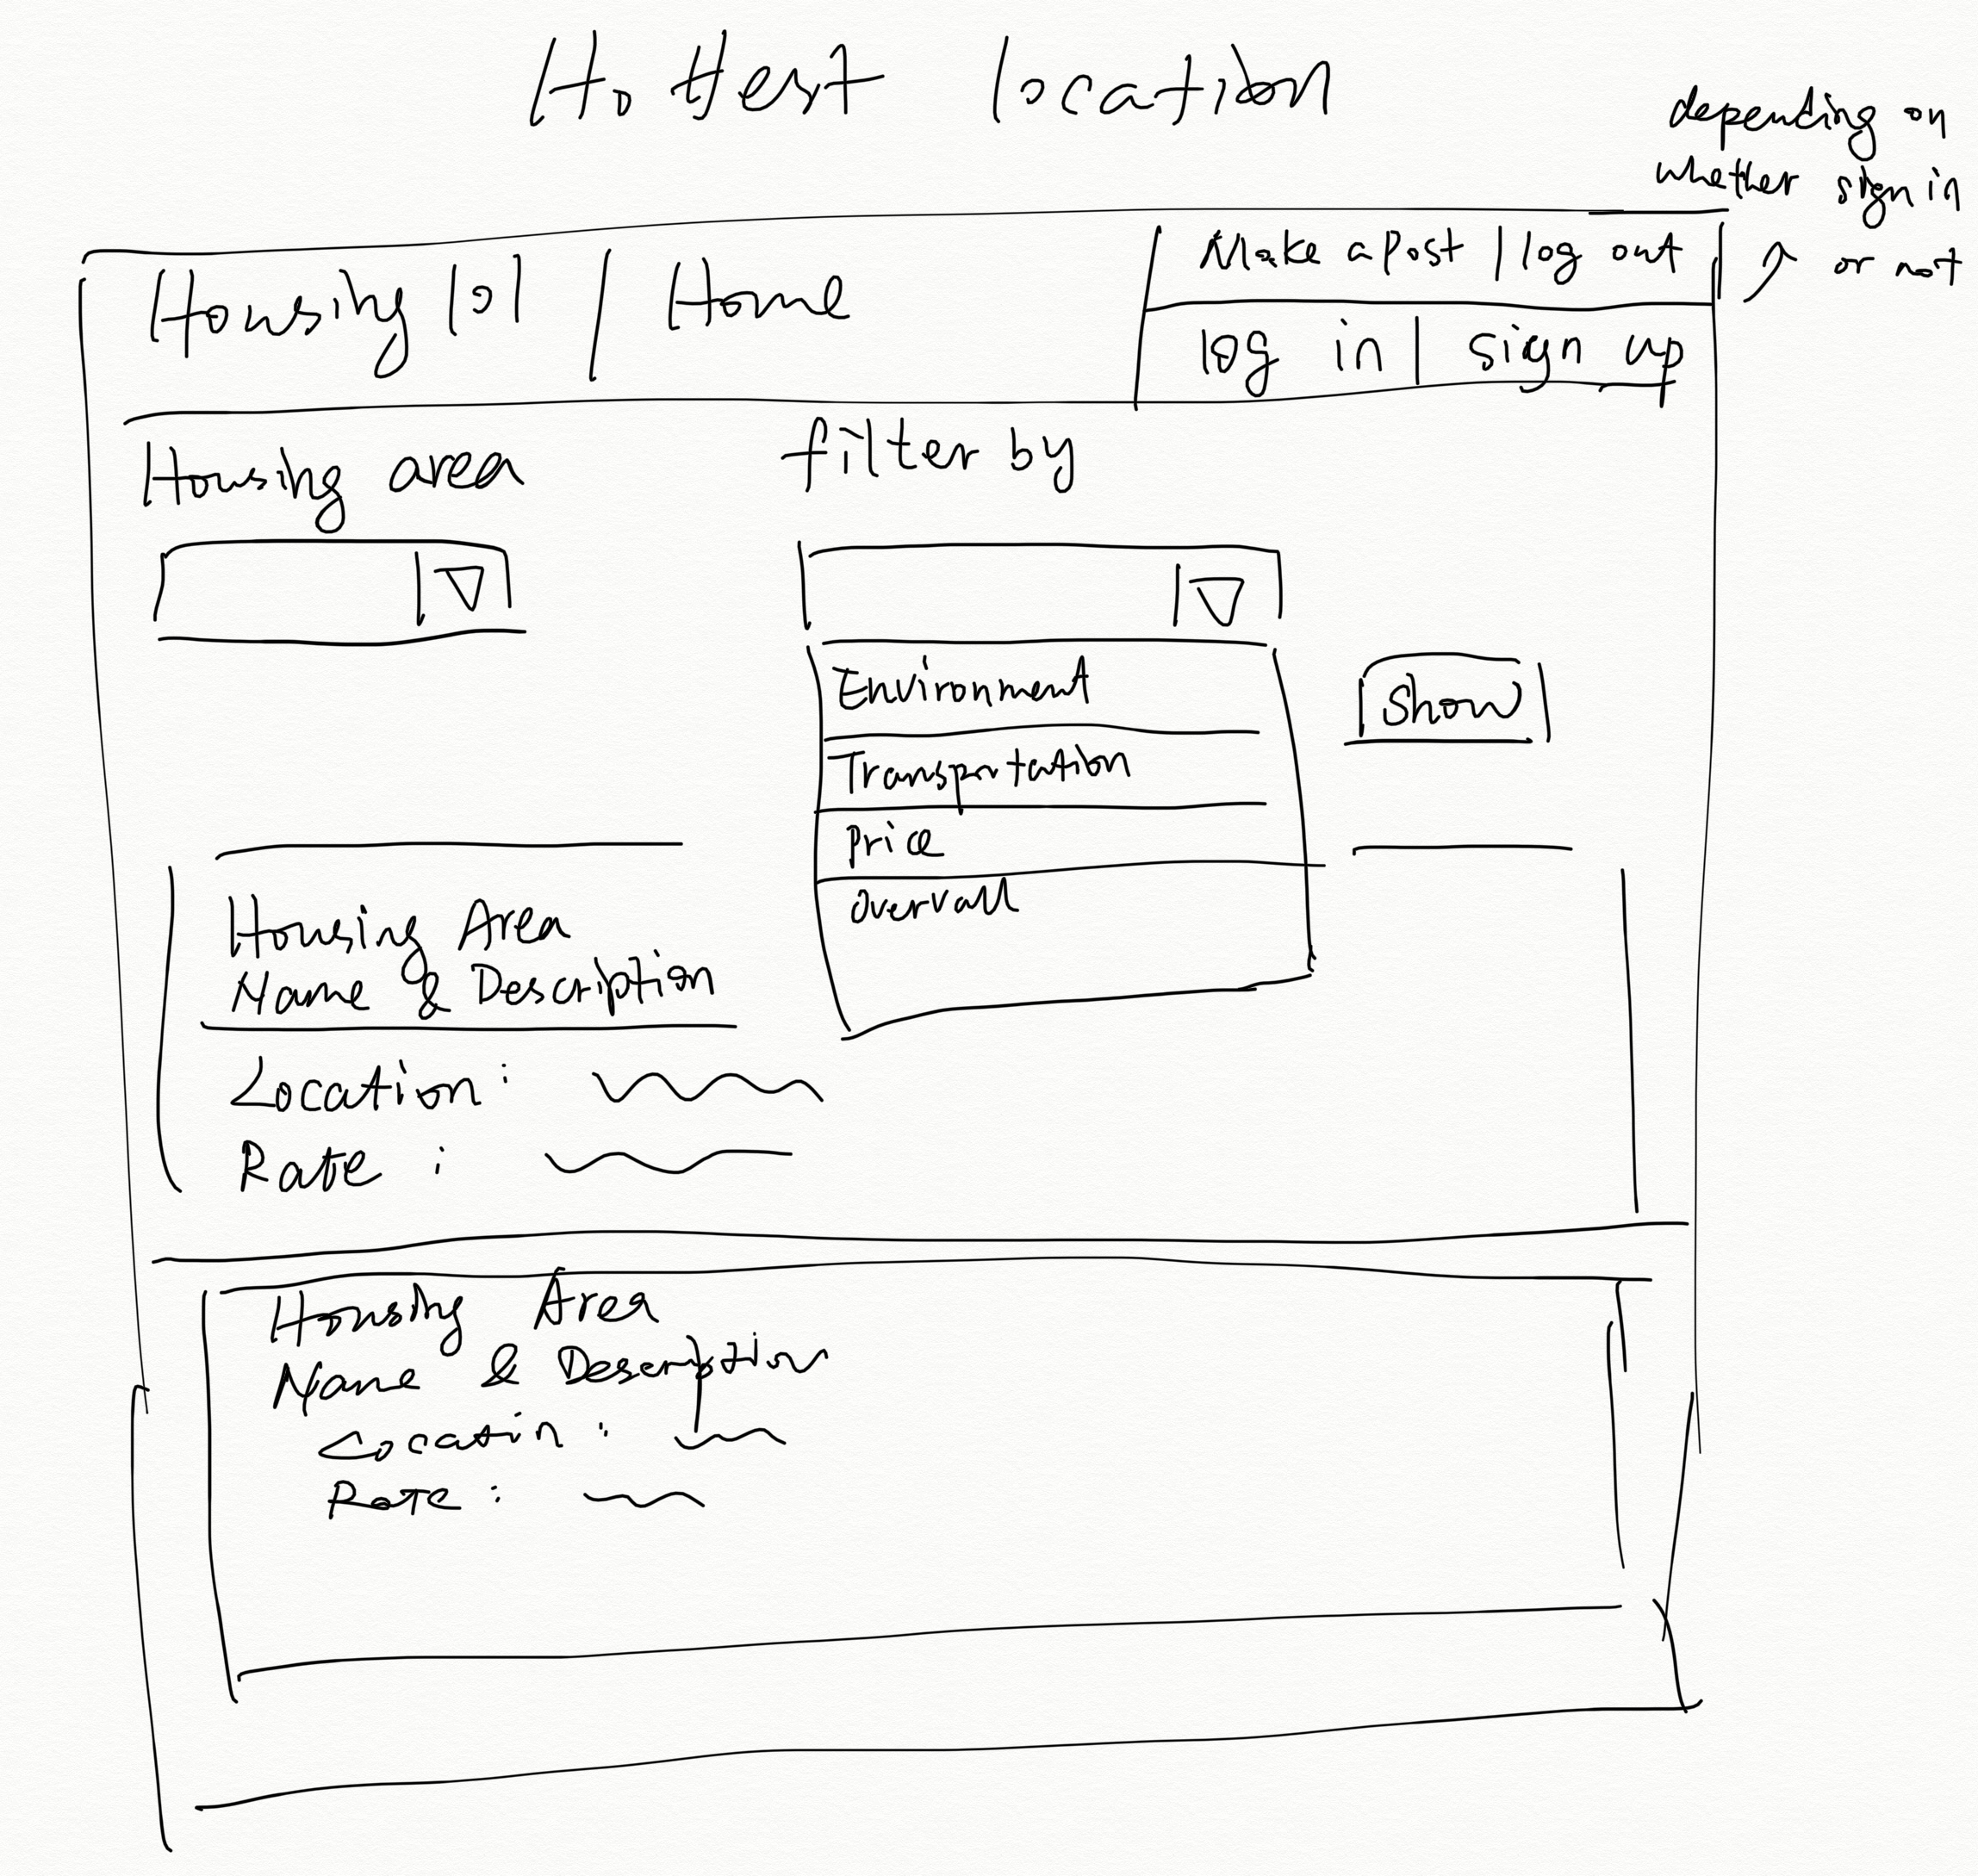 Hottest location
depending on
whether sign in
or not
Housing 101 | Home
Make a post | log out
log in | sign up
Housing area
filter by
Environment
Transportation
Price
Overvall
Show
Housing Area
Name & Description
Location :
Rate :
Housing Area
Name & Description
Location :
Rate :